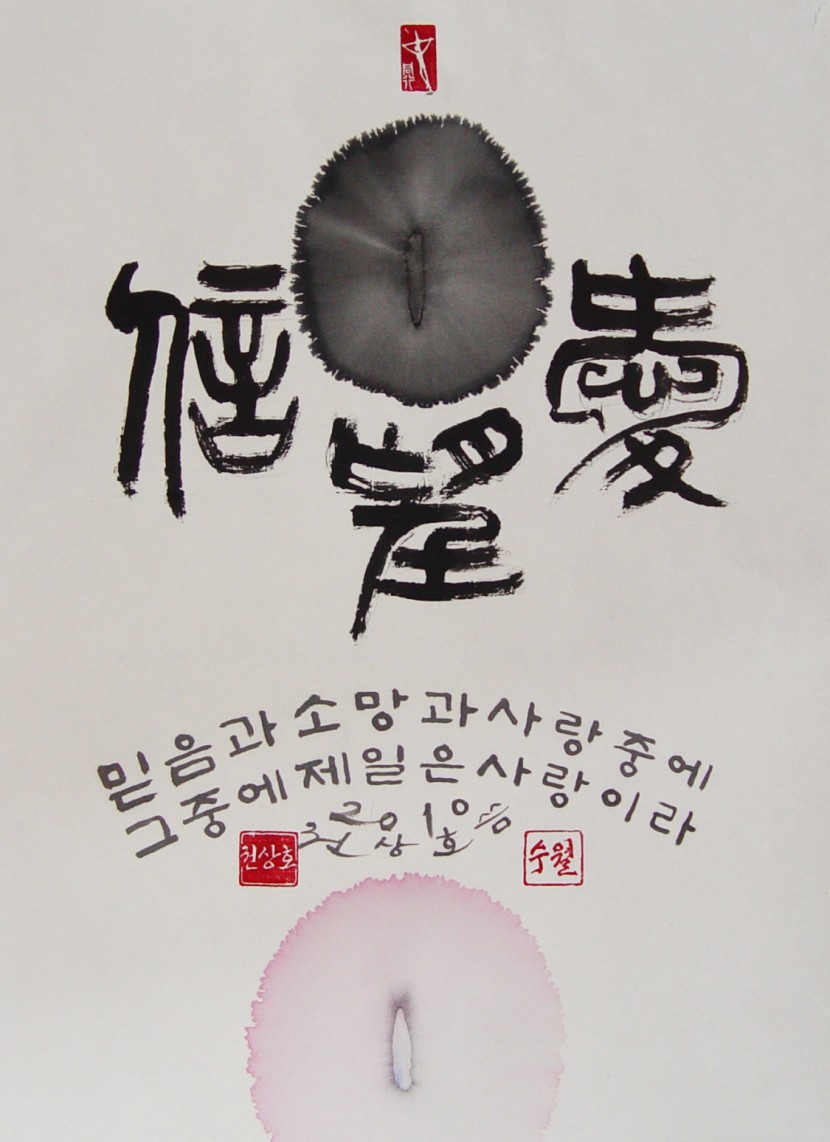 信望愛
믿음과소망과사랑중에
그중에제일은사랑이라
천상호
수월